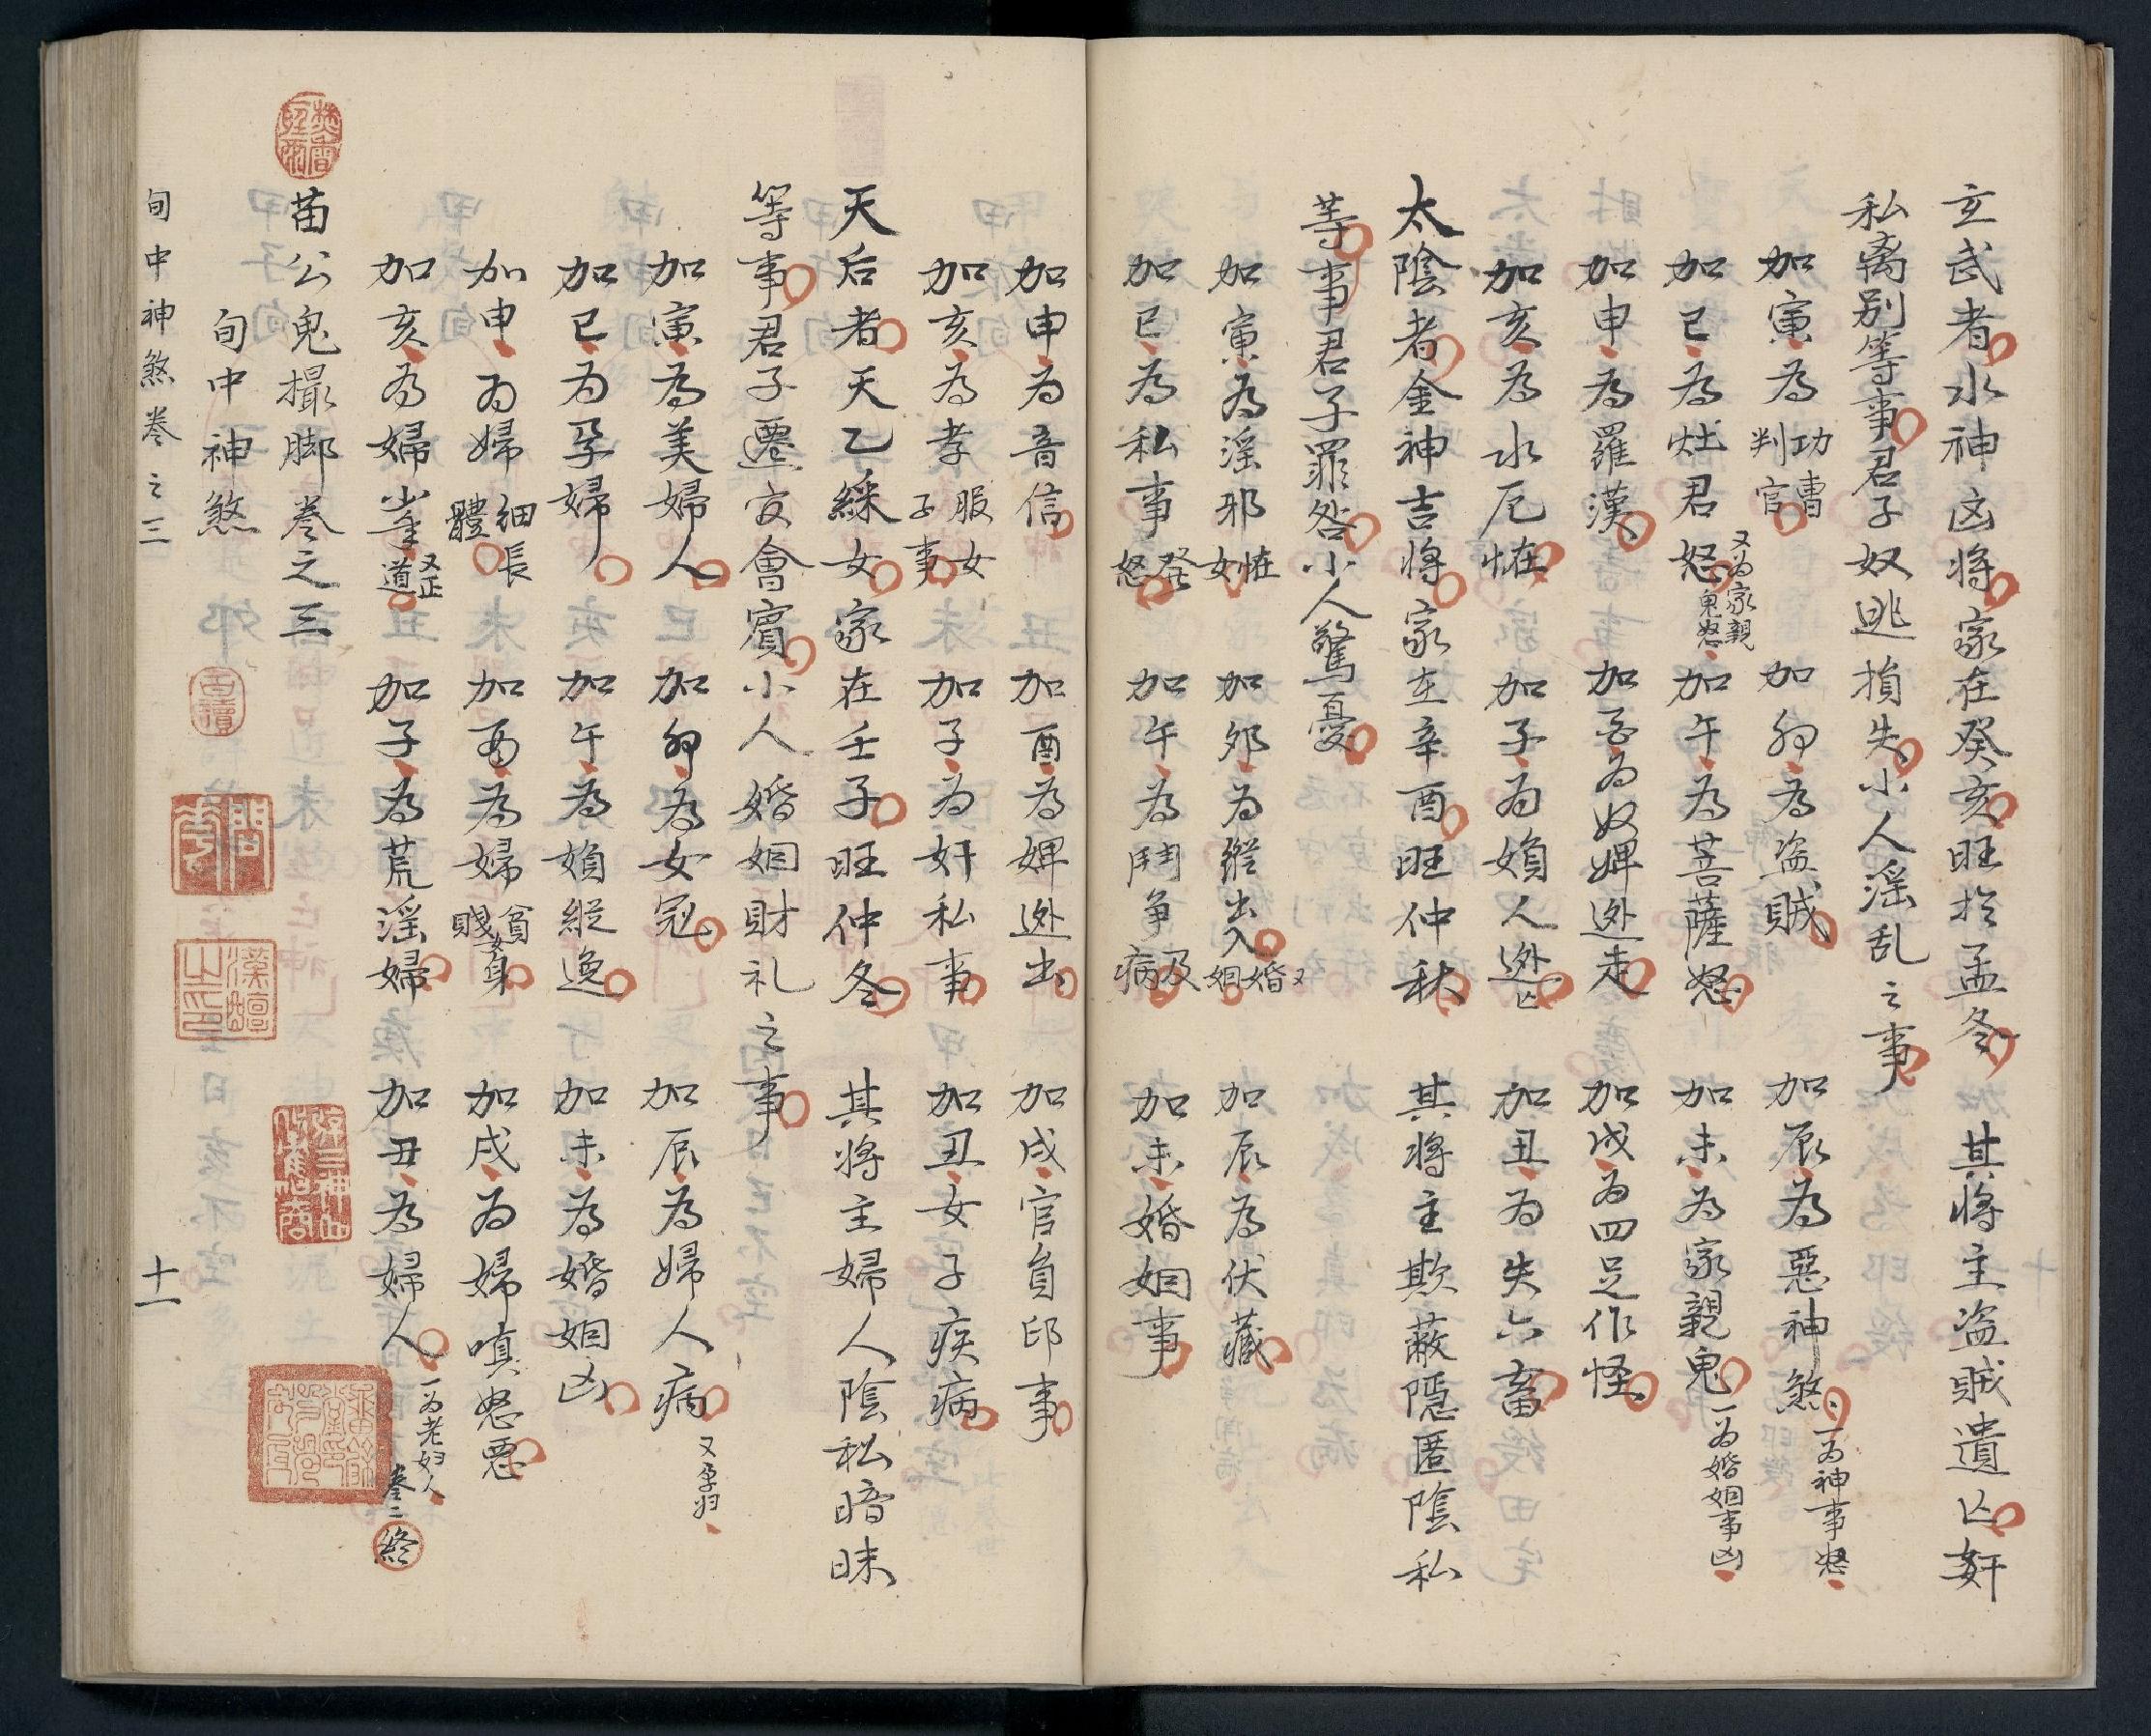 玄武者水神凶将家在癸亥旺於孟冬 其將主盗賊遺亡奸
私离别等事君子奴逃損失小人淫乱之事
加寅為功曹判官 加卯為盗賊 加辰為惡神煞一為神事怒
加巳為灶君怒又為家親鬼怒 加午為菩薩怒 加未為家親鬼一為婚姻事凶
加申為羅漢 加酉為奴婢逊走 加戌為四足作怪
加亥為水厄恠 加子為婦人逊亡 加丑為失六畜
太陰者金神吉將家在辛酉旺仲秋 其將主欺蔽隠匿陰私
等事君子罪咎小人驚憂
加寅為淫邪恠女 加卯為縱出入又婚姻 加辰為伏藏
加巳為私事發怒 加午為鬥争及病 加未婚姻事
加申為音信 加酉為婢逊出 加戌官員印事
加亥為孝服女子事 加子為奸私事 加丑女子疾病
天后者天乙綵女家在壬子旺仲冬 其将主婦人陰私暗昧
等事君子遷官會賓小人婚姻財礼之事
加寅為美婦人 加卯為女冠 加辰為婦人病又孕妇
加巳為孕婦 加午為婦縱逸 加未為婚姻凶
加申為婦細長體 加酉為婦貧女身賤 加戌為婦嗔怒惡
加亥為婦掌又正道 加子為荒淫婦 加丑為婦人一為老妇人
卷二終
苗公鬼撮脚卷之三
旬中神煞
旬中神煞卷之三 十一